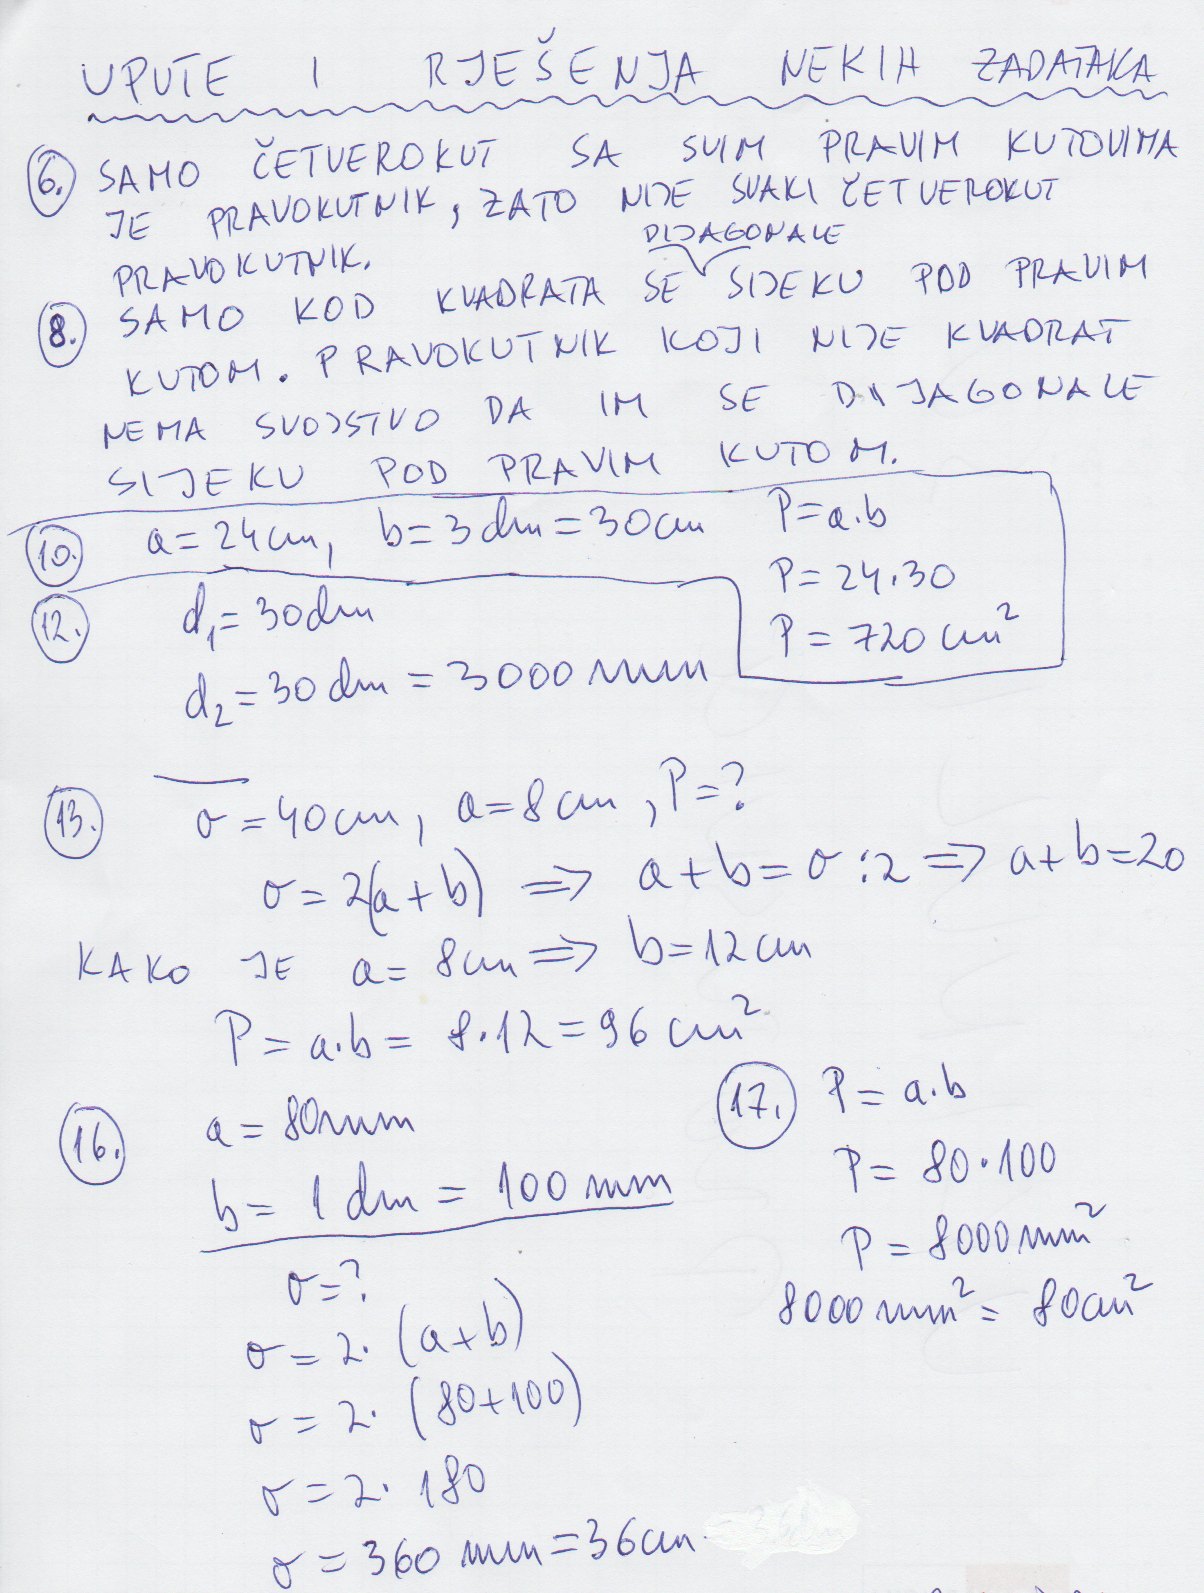 UPUTE I RJEŠENJA NEKIH ZADATAKA
6. SAMO ČETVEROKUT SA SVIM PRAVIM KUTOVIMA
JE PRAVOKUTNIK, ZATO NIJE SVAKI ČETVEROKUT
PRAVOKUTNIK.
DIJAGONALE
8. SAMO KOD KVADRATA SE SIJEKU POD PRAVIM
KUTOM. PRAVOKUTNIK KOJI NIJE KVADRAT
NEMA SVOJSTVO DA IM SE DIJAGONALE
SIJEKU POD PRAVIM KUTOM.
10. a=24cm, b=3dm=30cm
P=a·b
P=24·30
P=720cm²
12. d₁=30dm
d₂=30dm=3000mm
13. σ=40cm, a=8cm, P=?
σ=2(a+b) ⇒ a+b=σ:2 ⇒ a+b=20
KAKO JE a=8cm ⇒ b=12cm
P=a·b=8·12=96cm²
16. a=80mm
b=1dm=100mm
σ=?
σ=2·(a+b)
σ=2·(80+100)
σ=2·180
σ=360mm=36cm
17. P=a·b
P=80·100
P=8000mm²
8000mm²=80cm²